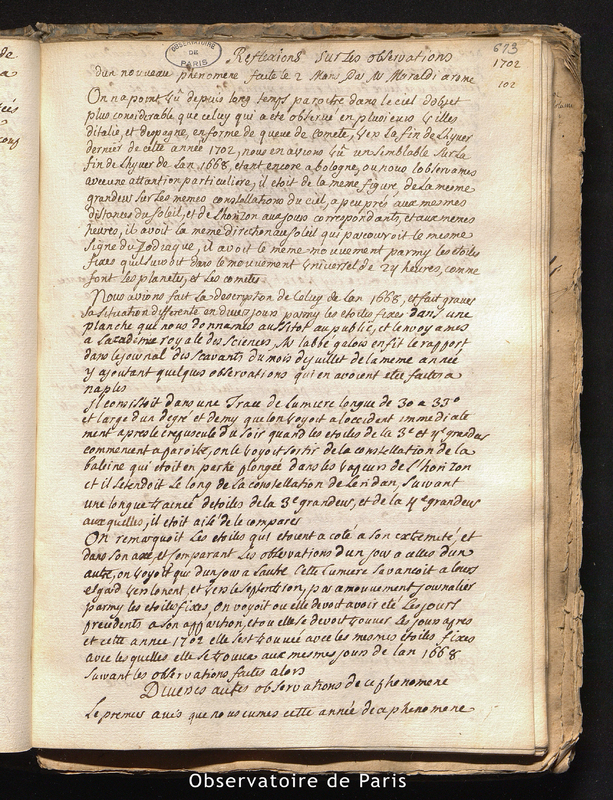 OBSERVATOIRE
DE
PARIS
673
1702
102
Reflexions sur Les observations
dun nouveau phenomene faite le 2 Mars Par M Maraldi a rome
On na point vû depuis long temps paroitre dans le ciel dobjet
plus considerable que celuy qui a eté observé en plusieurs villes
ditalie, et despagne, en forme de queue de Comete, vers La fin de Lhyver
dernier de cette année 1702, nous en avions vû un semblable sur La
fin de Lhyver de Lan 1668, etant encore a bologne, ou nous lobservames
avec une attantion particuliere, il etoit de la meme figure, de La meme
grandeur sur Les memes constellations du ciel, a peu prés aux mesmes
distances du soleil, et de Lhorizon aux jours correpondants, et aux memes
heures, il avoit la meme direction au soleil qui parcouroit le mesme
signe du Zodiaque, il avoit le méme mouvement parmy les etoiles
fixes quil suivoit dans le mouvement universel de 24 heures, comme
font les planetes, et Les cometes
Nous avions fait La description de Celuy de Lan 1668, et fait graver
sa situation differente en divers jours parmy les etoiles fixes dans une
planche que nous donnames aussitot au public, et lenvoyames
a Lacadémie royale des sciences, M labbé galois en fit le rapport
dans le journal des scavants du mois de juillet de la meme année
y ajoutant quelques observations qui en avoient eté faites a
naples
Il consistoit dans une Trace de Lumiere longue de 30 a 33°
et large dun degré et demy que lon voyoit a loccident immediate
ment aprés le crepuscule du soir quand les etoiles de la 3e et 4e grandeur
commencent a paroitre, on le voyoit sortir de la constellation de la
baleine qui etoit en partie plongée dans les vapeurs de Lhorizon
et il setendoit Le long de la constellation de Leridan, suivant
une longue trainée detoiles de la 3e grandeur, et de la 4e grandeur
auxquelles, il etoit aisé de comparer
On remarquoit Les etoiles qui etoient a coté a son extremité, et
dans son axe, et comparant Les observations dun jour a celles dun
autre, on voyoit que dun jour a Lautre Cette Lumiere savancoit a leurs
egard vers lorient et vers le septentrion, par un mouvement journalier
parmy les etoiles fixes, On voyoit ou elle devoit avoir eté Les jours
precedents a son apparition, et ou elle se devoit trouver Les jours aprés
et cette année 1702 elle sest trouvée avec les mesmes etoiles fixes
avec lesquelles elle se trouva aux mesmes jours de lan 1668
suivant les observations faites alors
Diverses autres observations de ce phenomene
Le premier avis que nous eumes cette année de ce phenomene
Observatoire de Paris